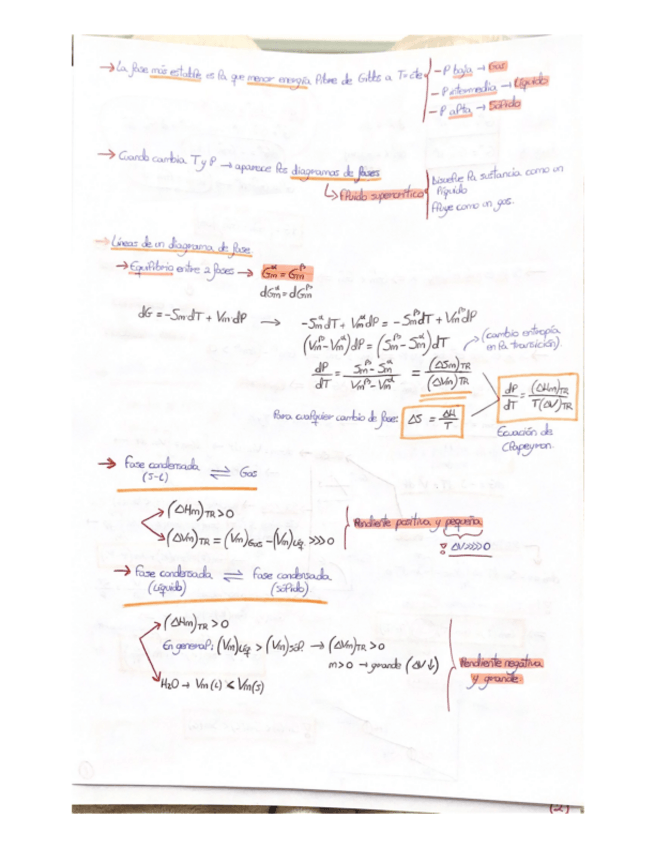 → La fase más estable es la que menor energía libre de Gibbs a T=cte
– P baja → Gas
– P intermedia → Líquido
– P alta → Sólido
→ Cuando cambia T y P → aparece los diagramas de fases
↳ Fluido supercrítico
Disuelve la sustancia como un
líquido
fluye como un gas.
→ Líneas de un diagrama de fase
→ Equilibrio entre 2 fases → Gmᵅ = Gmᵝ
dGmᵅ = dGmᵝ
dG = -SmdT + VmdP → -SmᵅdT + VmᵅdP = -SmᵝdT + VmᵝdP
(Vmᵝ-Vmᵅ)dP = (Smᵝ-Smᵅ)dT
(cambio entropía
en la transición).
dP/dT = (Smᵝ-Smᵅ)/(Vmᵝ-Vmᵅ) = (ΔSm)TR/(ΔVm)TR
dP/dT = (ΔHm)TR/T(ΔV)TR
Para cualquier cambio de fase: ΔS = ΔH/T
Ecuación de
Clapeyron.
→ Fase condensada ⇌ Gas
(S-L)
(ΔHm)TR > 0
(ΔVm)TR = (Vm)Gas - (Vm)Líq. >>> 0
Pendiente positiva y pequeña
ΔV>>>>0
→ Fase condensada ⇌ Fase condensada
(Líquido) (sólido)
(ΔHm)TR > 0
En general: (Vm)Líq > (Vm)sól. → (ΔVm)TR > 0
m>0 → grande (ΔV↓)
H2O → Vm(L) < Vm(s)
Pendiente negativa
y grande.
(2)